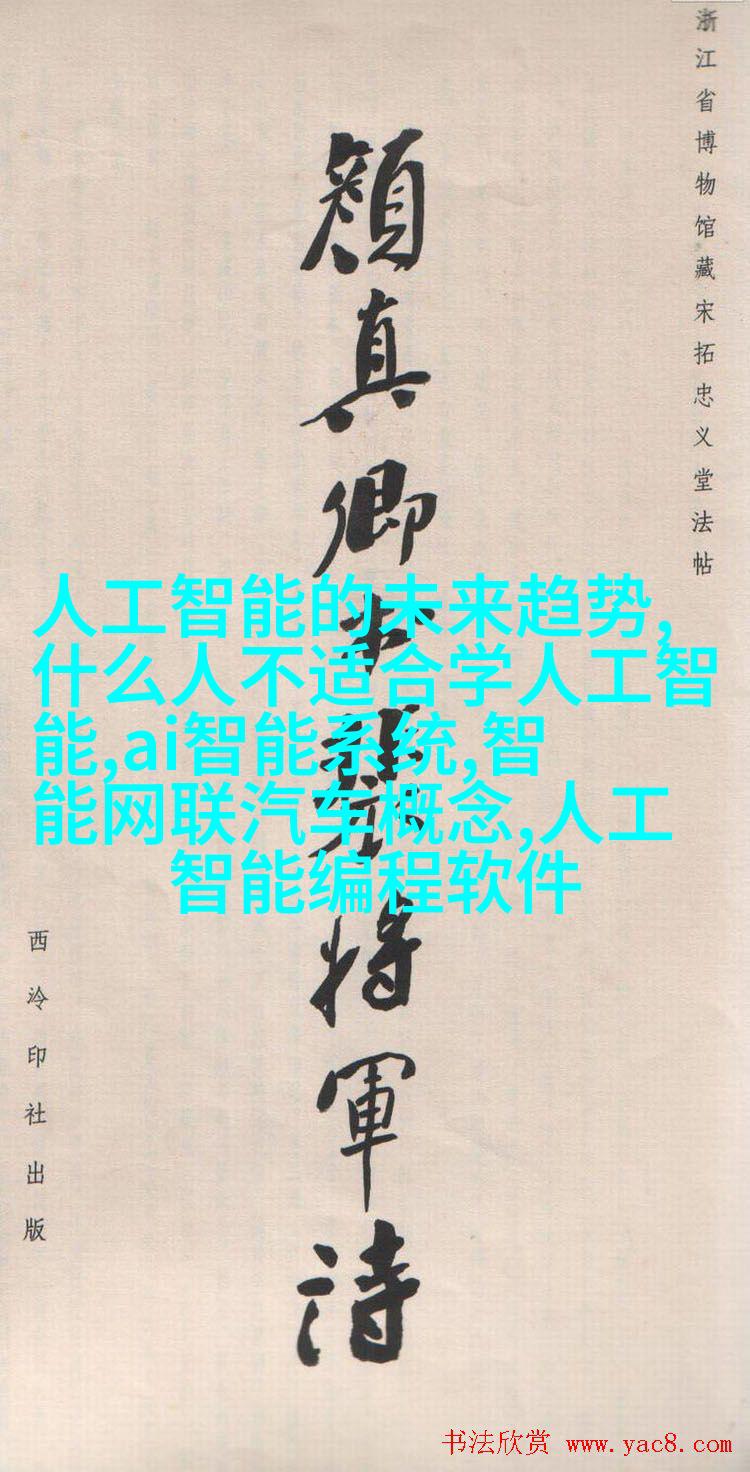 浙江省博物馆藏宋拓忠义堂法帖
颜真卿书裴将軍诗
人工智能的未来趋势,
什么人不适合学人工智
能,ai智能系统,智
能网联汽车概念,人工
智能编程软件
西泠印社出版
书法欣赏 www.yac8.com